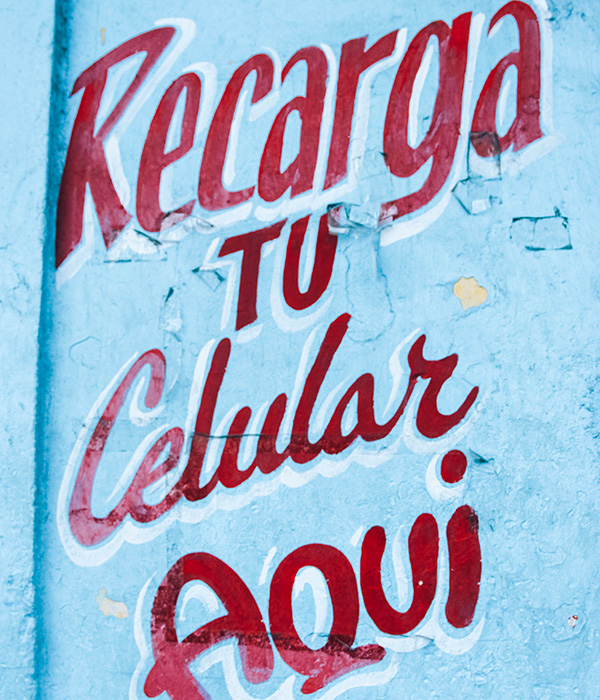 Recarga
TU
Celular
AQUi